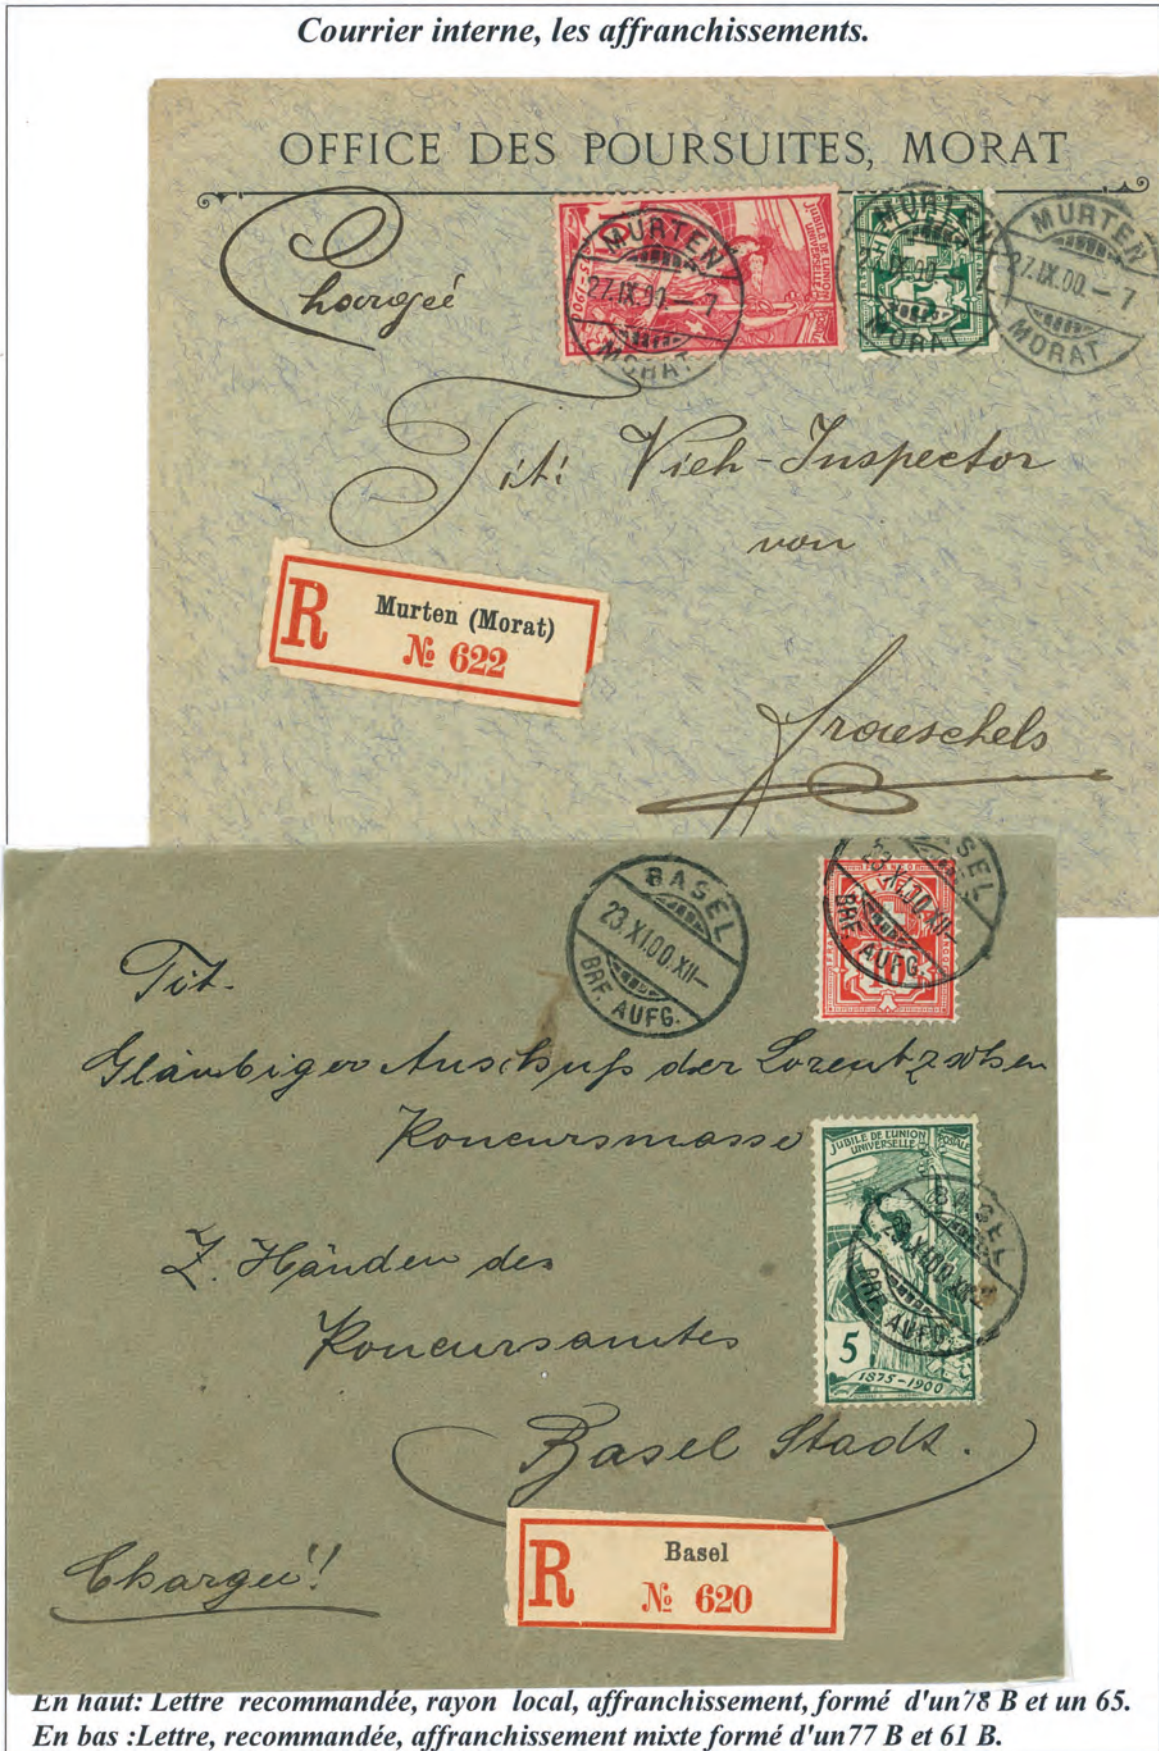 Courrier interne, les affranchissements.
OFFICE DES POURSUITES, MORAT
Chargée
10
JUBILÉ DE L'UNION POSTALE
UNIVERSELLE
1875-1900
MURTEN
27.IX.00.-7
MORAT
5
MURTEN
IX.00.-7
MORAT
MURTEN
27.IX.00.-7
MORAT
Tit: Vieh-Inspector
von
Fraeschels
R
Murten (Morat)
№ 622
BASEL
23.XI.00.XII-
BRF. AUFG.
FRANCO
HELVETIA
10
BASEL
23.XI.00.XII-
BRF. AUFG.
Tit.
Gläubiger Ausschuß der Lorentz'schen
Koncursmasse
JUBILÉ DE L'UNION POSTALE
UNIVERSELLE
5
1875-1900
BASEL
23.XI.00.XII-
BRF. AUFG.
Z. Händen des
Koncursamtes
Basel Stadt.
Chargée!!
R
Basel
№ 620
En haut: Lettre recommandée, rayon local, affranchissement, formé d'un 78 B et un 65.
En bas :Lettre, recommandée, affranchissement mixte formé d'un 77 B et 61 B.